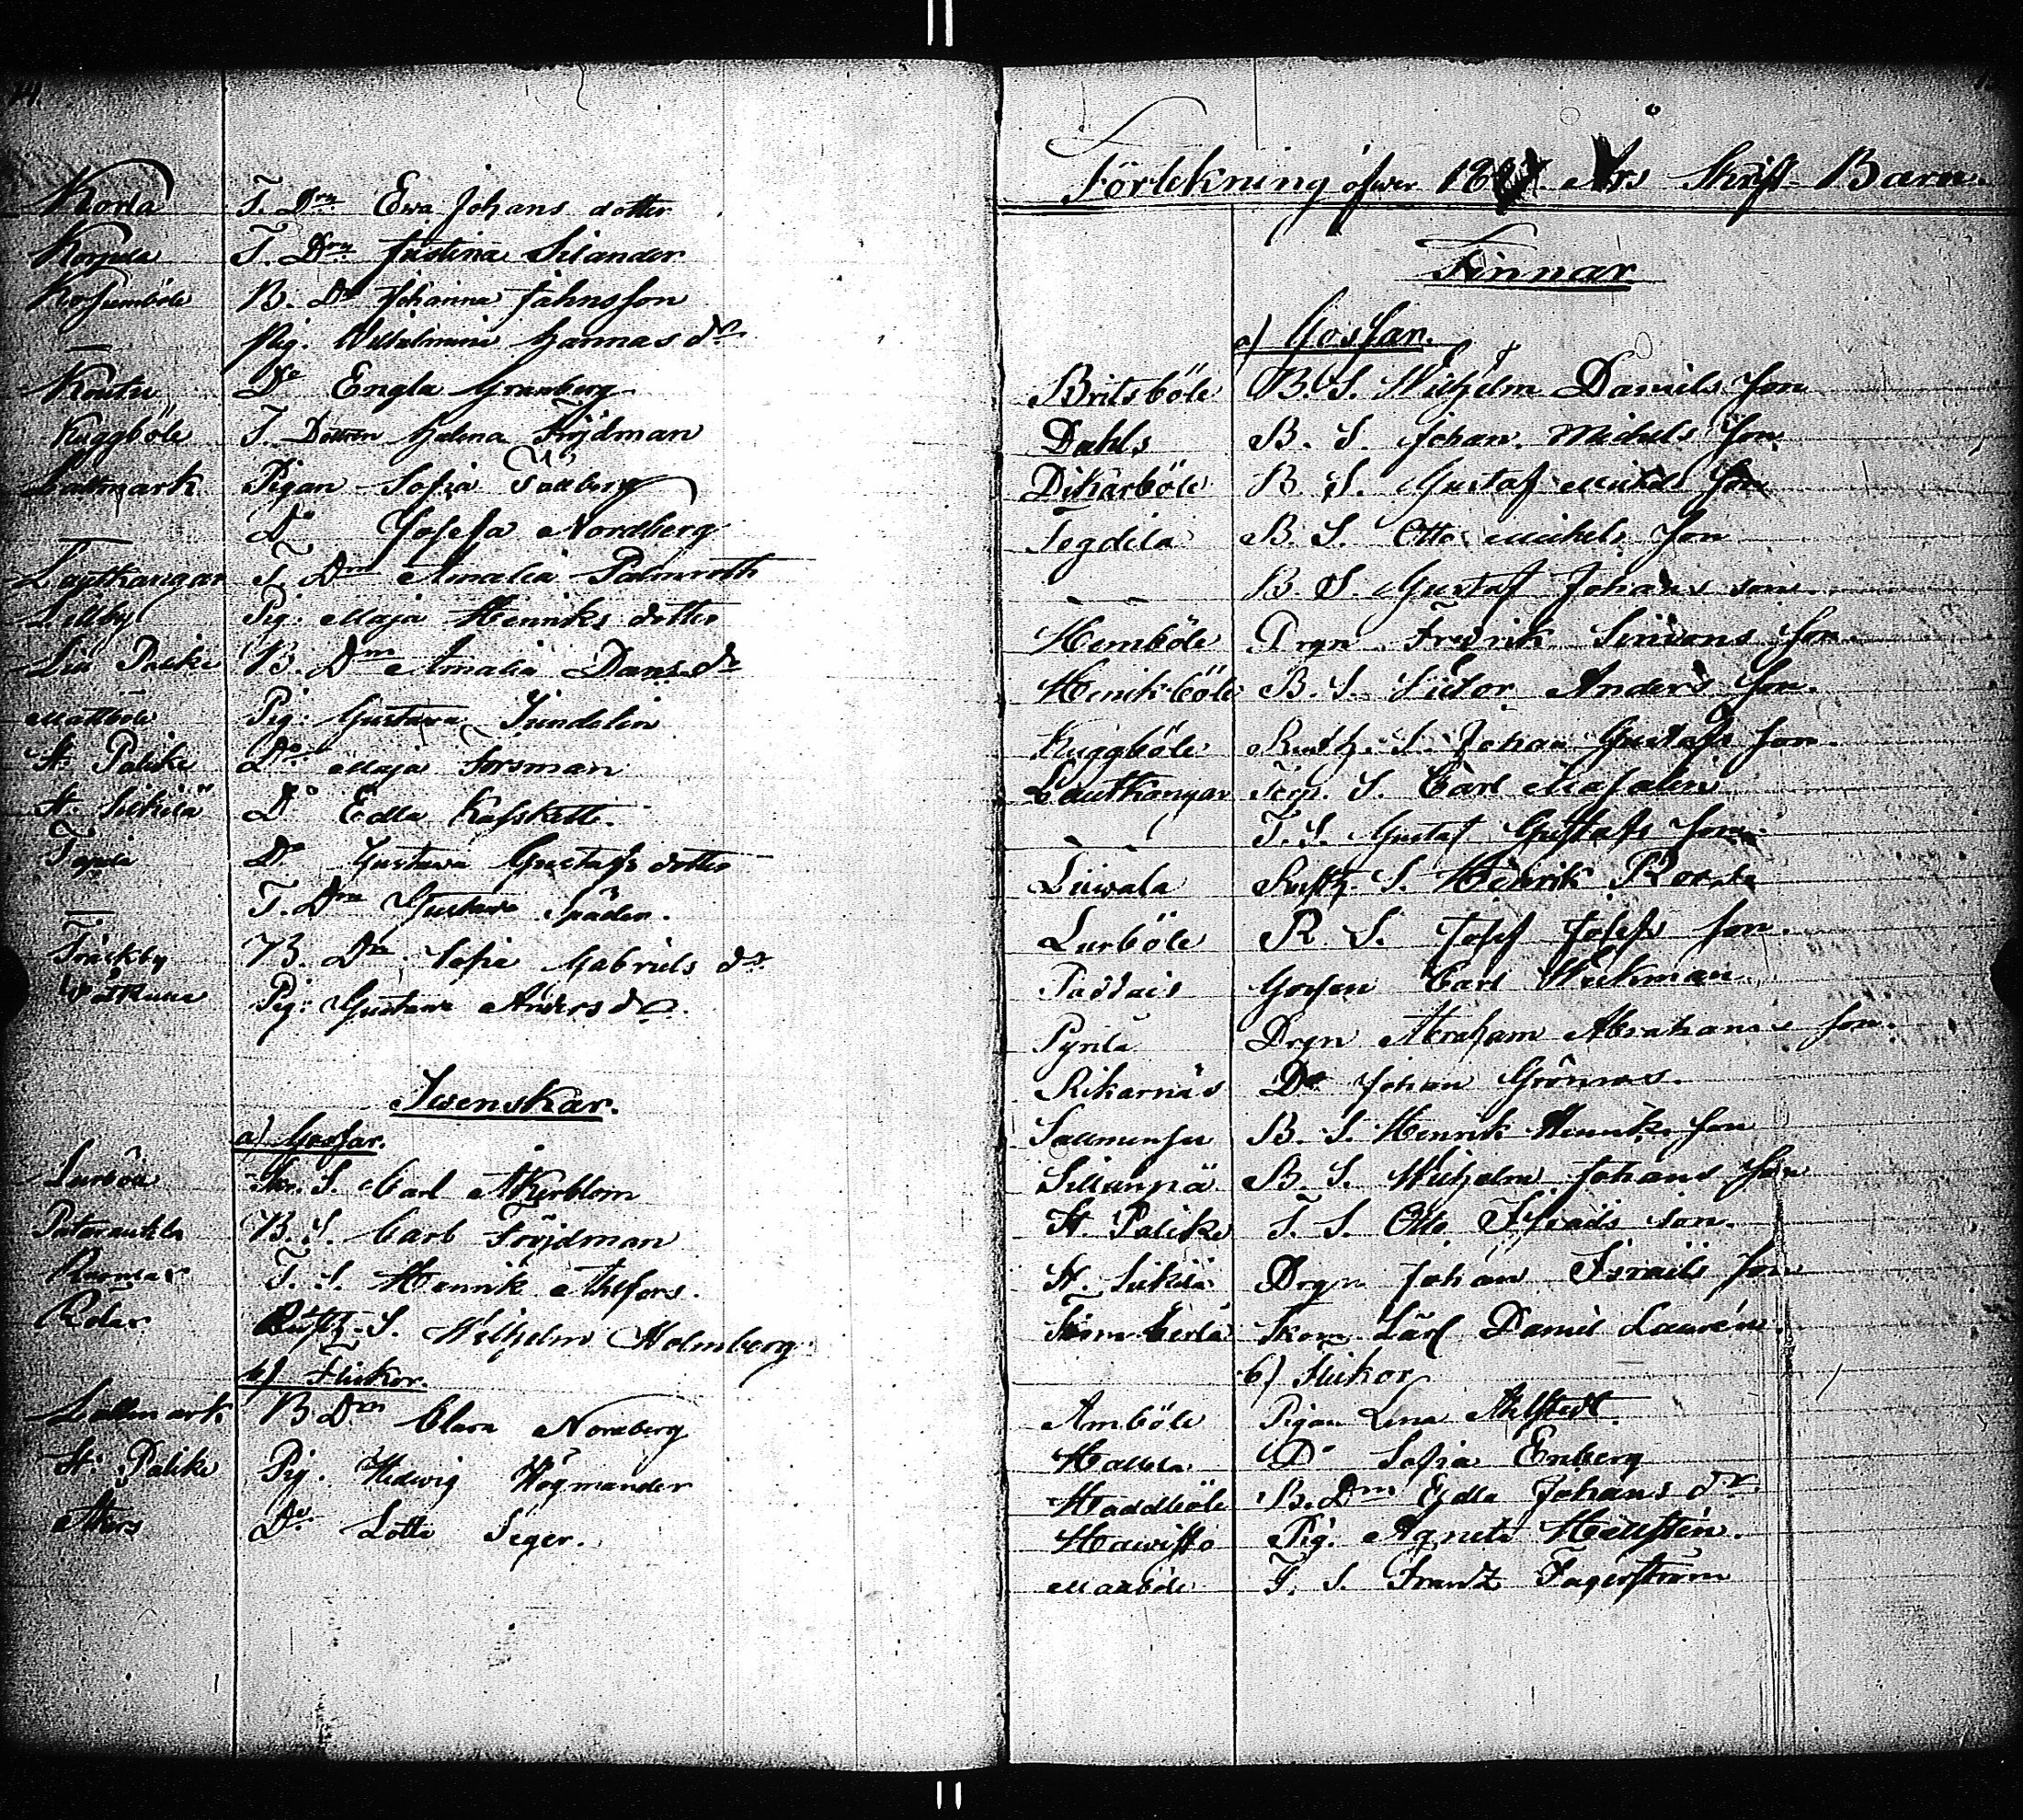 Korla T. Drn Ewa Johans dotter
Korpela T. Drn Justina Silander
B. Dr Johanna Jahnsson
— Pig. Wilhelmina Hannas dr
Koutu Do Engla Granberg
Kuggböle T. Dottren Helena Fröjdman
Lallmark Pigan Sofia
— Do Josefa Nordberg
Lautkangar T. Drn Amalia Palmroth
Lillby Pig. Maja Henriks dotter
Lill Palike B. Drn Amalia Dans dr
Mattböle Pig. Gustava
St. Palike Do Maja Forsman
St. Sikilä Do Edla
Do Gustava Gustafs dotter
— T. Drn Gustava
B. Dr Sofia Gabriels dr
Pig. Gustava Anders dr.
Swenskar.
a) Gossar.
Lurböle S. Carl Åkerblom
B. S. Carl Fröjdman
T. S. Henrik Ahlfors.
Rusth. S. Wilhelm Holmberg
b) Flickor.
Lallmark B Drn Clara Noreberg
St. Palike Pig. Hedwig Högmander
Åkers Do Lotta Seger.
Förtekning öfwer 18 Års Skrift-Barn.
Finnar
a) Gossar.
Britsböle B. S. Wilhelm Daniels son
Dahls B. S. Johan Michels son
Dikarböle B. S. Gustaf Mickels son
Segdila B. S. Otto Mickels son
— B. S. Gustaf Johans son
Hemböle Drgn Fredrik Simons son
Henikböle B. S. Victor Anders son.
Kuggböle Rusth. S. Johan Gustafs son.
Lautkangar S. Carl
T. S. Gustaf Gustafs son
Liuwala Rusth. S. Henrik
Lurböle R. S. Josef Josefs son.
Paddais Gossen Carl Wickman
Pyrilä Drgn Abraham Abrahams son.
Rikarnäs Do Johan Grönroos.
B. S. Henrik Henriks son
B. S. Wilhelm Johans son
St. Palike T. S. Otto Israels son.
St. Sikilä Drgn Johan Israels son
Daniel Laurén
b) Flickor
Amböle Pigan Lena Ahlstedt.
Hallela Do Sofia Enberg
Haddböle B. Drn Edla Johans dr.
Hawisto Pig. Agneta Hallstén.
T. S. Frantz Fagerström